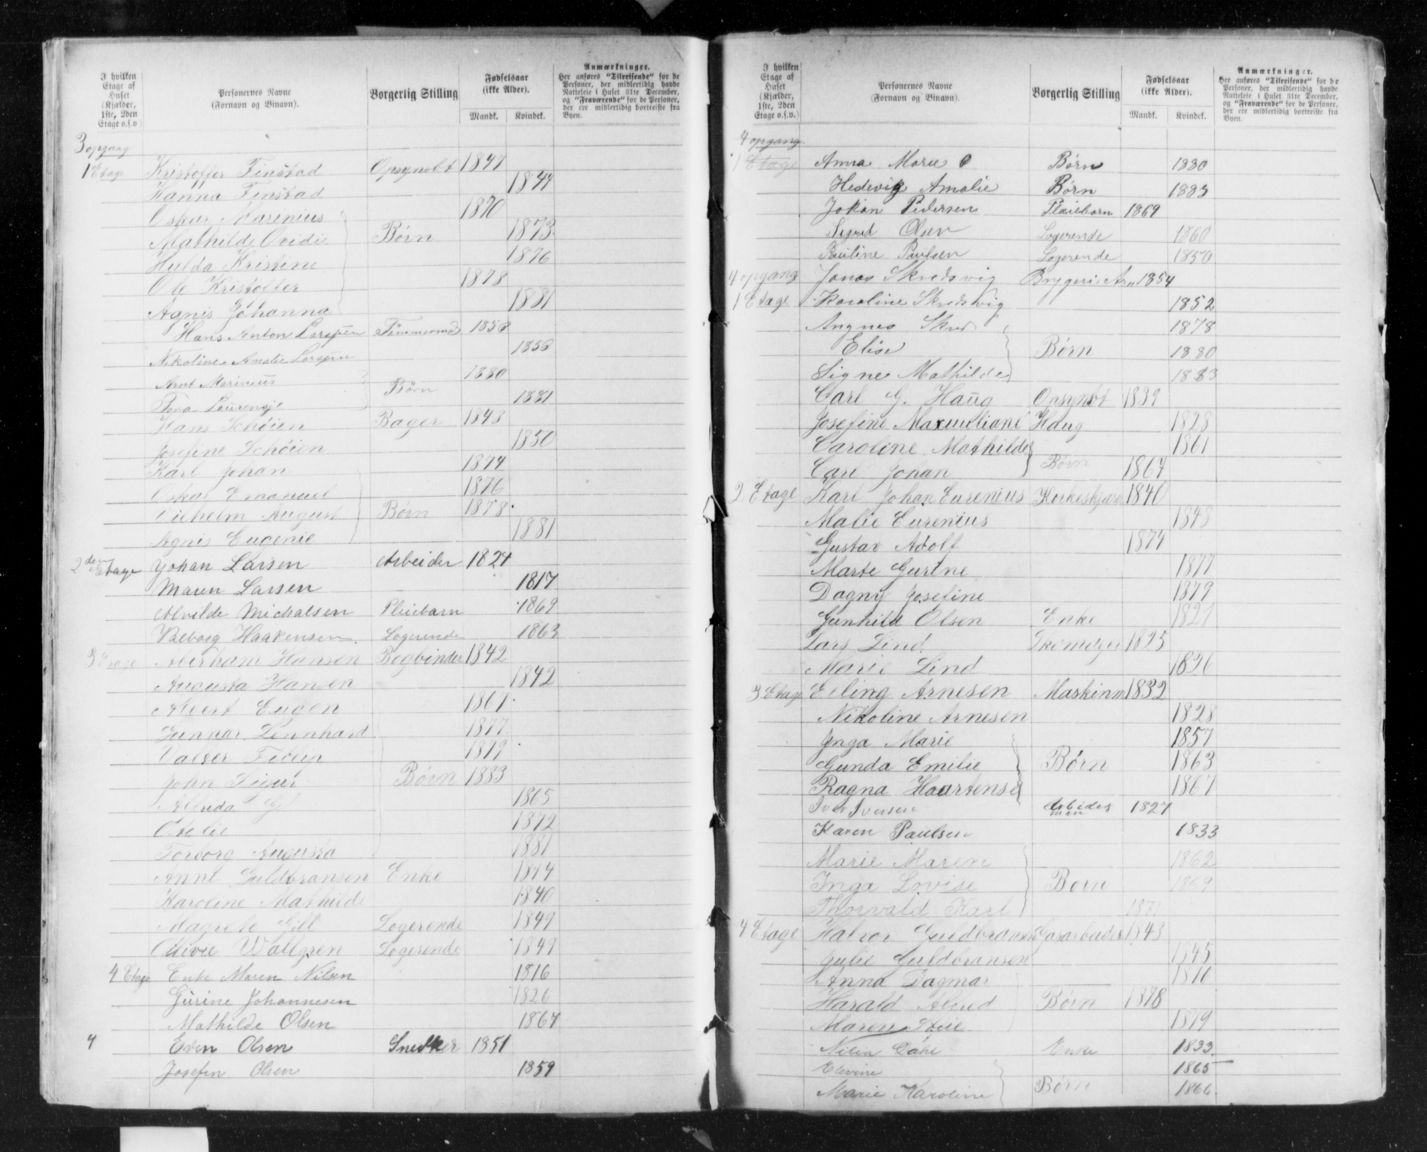 I hvilken
Etage af
Huset
(Kjælder,
1ste, 2den
Etage o.s.v.
Personernes Navne
(Fornavn og Binavn).
Borgerlig Stilling
Fødselsaar
(ikke Alder).
Mandk. Kvindek.
Anmærkninger.
Her anføres "Tilreisende" for de
Personer, der midlertidig havde
Natteleie i Huset 31te December,
og "Fraværende" for de Personer,
der ere midlertidig bortreiste fra
Byen.
3 opgang
1 Etag Kristoffer Finstad Opsynsbt 1847
Hanna Finstad 1849
Oskar Marenius 1870
Mathilde Ovidie Børn 1873
Hulda Kristine 1876
Ole Kristoffer 1878
Agnis Johanna 1881
Hans Anton Tømmermd 1858
Nikoline Amalie 1858
Marinius 1880
Børn 1881
Hans Schöien Bager 1848
Josefine Schöien 1850
Karl Johan 1874
Oskar Emanuel 1876
Vilhelm August Børn 1878
Agnis Eugenie 1881
2den Etage Johan Larsen Arbeider 1824
Maren Larsen 1817
Alvilde Michalsen Pleiebarn 1869
Valborg Haakensen Logerende 1863
3 Abraham Hansen Bogbinder 1842
Augusta Hansen 1842
Albert Eugen 1861
Gunnar Lennhard 1877
1879
John Børn 1883
1865
1872
Torborg Augusta 1881
Anne Guldbransen Enke 1814
Karoline Mathilde 1840
Magrete Gill Logerende 1849
Wallgren Logerende 1849
4 Etage Enke Maren Nilsen 1816
Gurine Johannesen 1826
Mathilde Olsen 1864
4 Even Olsen Snedker 1851
Josefin Olsen 1859
I hvilken
Etage af
Huset
(Kjælder,
1ste, 2den
Etage o.s.v.)
Personernes Navne
(Fornavn og Binavn).
Borgerlig Stilling
Fødselsaar
(ikke Alder).
Mandk. Kvindek.
Anmærkninger.
Her anføres "Tilreisende" for de
Personer, der midlertidig havde
Natteleie i Huset 31te December,
og "Fraværende" for de Personer,
der ere midlertidig bortreiste fra
Byen.
4 opgang
1 Etage Anna Marie Børn 1880
Hedevig Amalie Børn 1883
Johan Pedersen Pleiebarn 1869
Sigrid Olsen Logerende 1860
Pauline Paulsen Logerende 1850
4 opgang Jonas Skredsvig Bryggeri 1854
1 Etage Karoline Skredsvig 1852
Angnes 1878
Elise Børn 1880
Signe Mathilde 1883
Carl G. Haug Opsynsbt 1839
Josefine Maximiliane Haug 1828
Caroline Mathilde 1861
Carl Johan Børn 1864
2 Etage Karl Johan Eurenius 1840
Malie Eurenius 1848
Gustav Adolf 1874
Marte Gurine 1877
Dagny Josefine 1879
Gunhild Olsen Enke 1821
Lars Lind 1825
Marie Lind 1826
3 Etage Erling Arnesen Maskinm 1832
Nikoline Arnesen 1828
Inga Marie 1857
Gunda Emilie Børn 1863
Ragna Haartense 1867
Iver Iversen Arbeidsmm 1827
Karen Paulsen 1833
Marie Maren 1862
Inga Lovise Børn 1869
Thorvald Karl 187
4 Etage Halvor Guldbransen Gasarbeider 1843
Julie Guldbransen 1845
Anna Dagmar 1876
Harald Alfred Børn 1878
Maren 1879
Enke 1833
1865
Marie Karoline Børn 1866